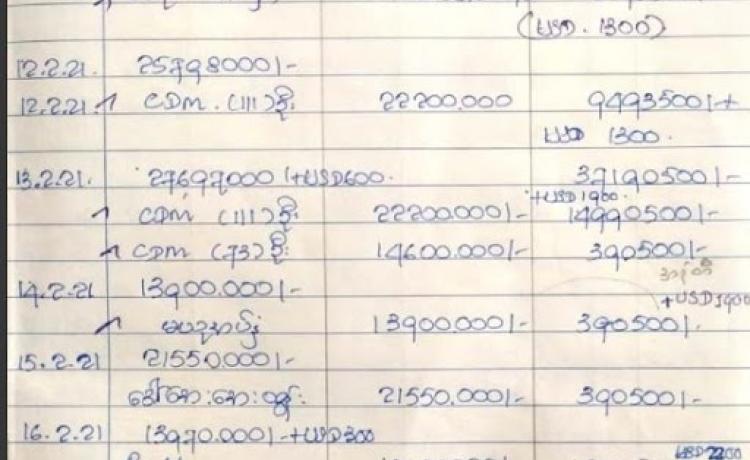 (USD. 1300)
12.2.21. 25798000/-
12.2.21 CDM. (111) ဦး 22200.000 9493500/-+
USD 1300.
13.2.21. 27697000/+USD600. 37190500/-
+USD1900.
CDM (111) ဦး 22200.000/- 14990500/-
CDM (73) ဦး 14600.000/- 390500/-
+USD1900
14.2.21 13900.000/-
13900.000/- 390500/-
15.2.21 21550.000/-
21550.000/- 390500/-
16.2.21 13970.000/-+USD300
USD2200